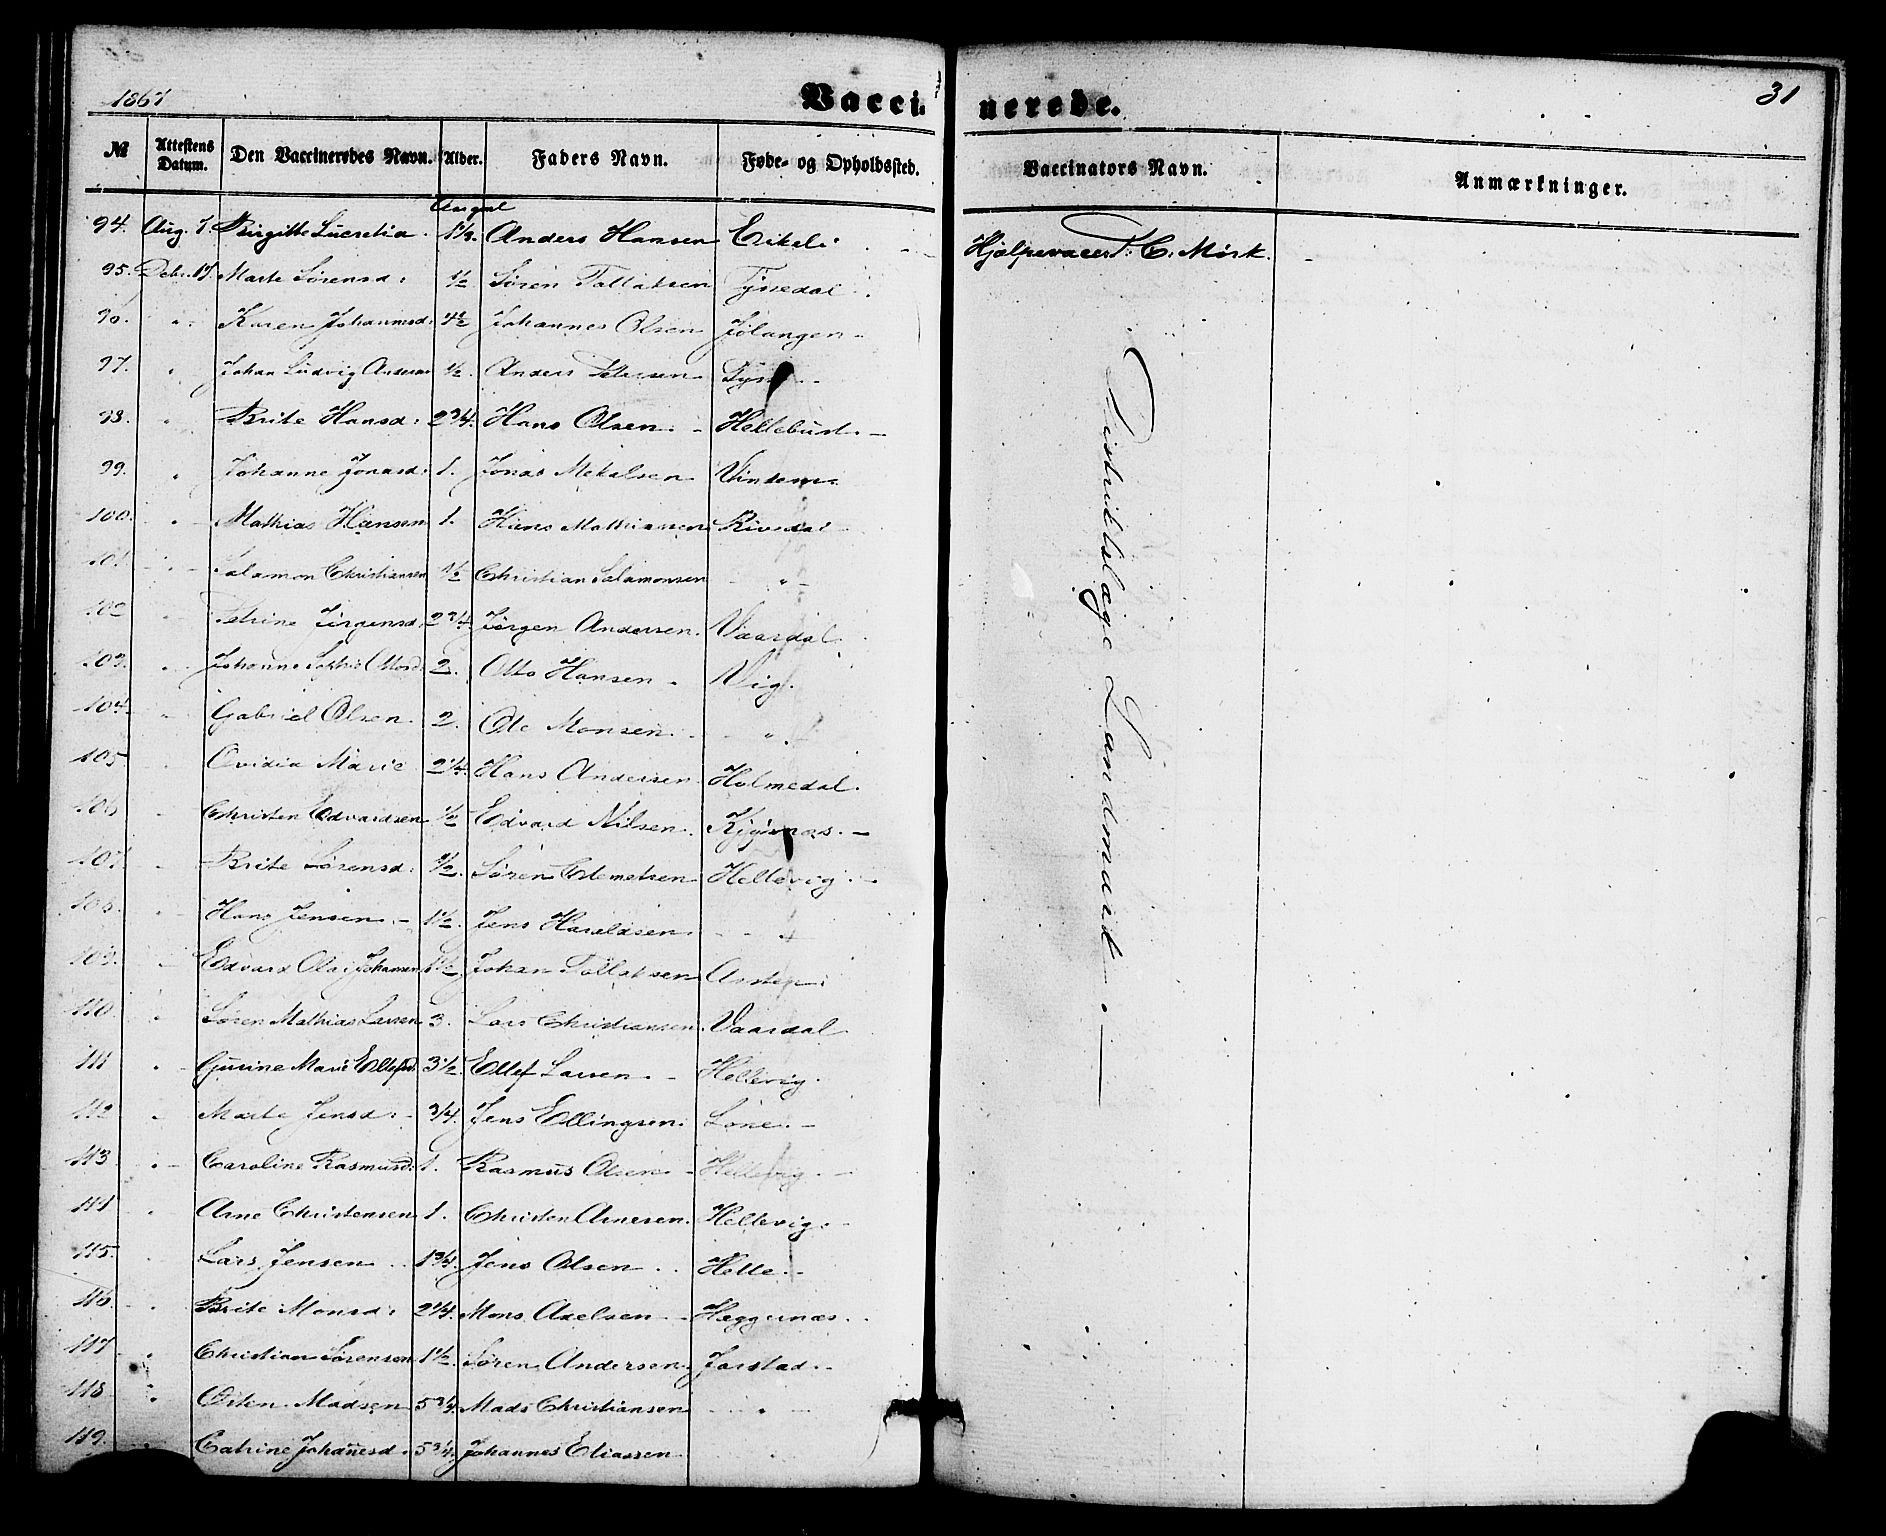 1867 Vaccinerede. 31
№ Attestens Datum. Den Vaccineredes Navn. Alder. Faders Navn. Føde- og Opholdssted. Vaccinators Navn. Anmærkninger.
94. Aug. 7. Birgitte Lucretia 1½. Anders Hansen Eikeli Hjælpevacc: C. Mörk.
95. Decbr. 17. Marte Sørensd: ½ Søren Tollaksen Tyssedal
96. " Karen Johannesd: 4½ Johannes Olsen Folangen
97. " Johan Ludvig Andersen ½. Anders Petersen
98. " Brite Hansd: 2¾. Hans Olsen Hellebust
99. " Johanne Jonasd: 1. Jonas Mekalsen
100. " Mathias Hansen 1. Hans Mathiassen Rivedal
101. " Salamon Christiansen 1½ Christian Salamonsen "
102 " Petrine Jørgensd. 2¾. Jørgen Andersen. Vaardal.
103. " Johanne Sophie Ottosd: 2. Otto Hansen Vig.
104. " Gabriel Olsen 2. Ole Monsen "
105 Ovidia Marie 2¼. Hans Andersen Holmedal.
106 Christen Edvardsen ½ Edvard Nilsen.
107. Brite Sørensd: ½. Søren Clemetsen Hellevig
108. " Hans Jensen 1½. Jens Haraldsen "
109. Edvard Olai Johansen 1½ Johan Tollaksen
110. " Søren Mathias Larsen 3. Lars Christiansen. Vaardal
111 " Gurine Marie Ellefsd. 3½. Ellef Larsen Hellevig.
112 " Marte Jensd: ¾. Jens Ellingsen: Lone.
113 " Caroline Rasmusd. 1. Rasmus Olsen Hellevig
114 " Arne Christensen 1. Christen Arnesen. Hellevig.
115. " Lars Jensen 1¾. Jens Olsen Helle.
116. " Brite Monsd: 2¼. Mons Axelsen Heggenæs
117. " Christian Sørensen 1½. Søren Andersen Jarstad
118 " Osten Madsen 5¾. Mads Christiansen "
119. Catrine Johannesd. 5¾. Johannes Eliassen "
Distriktslæge Landmark.